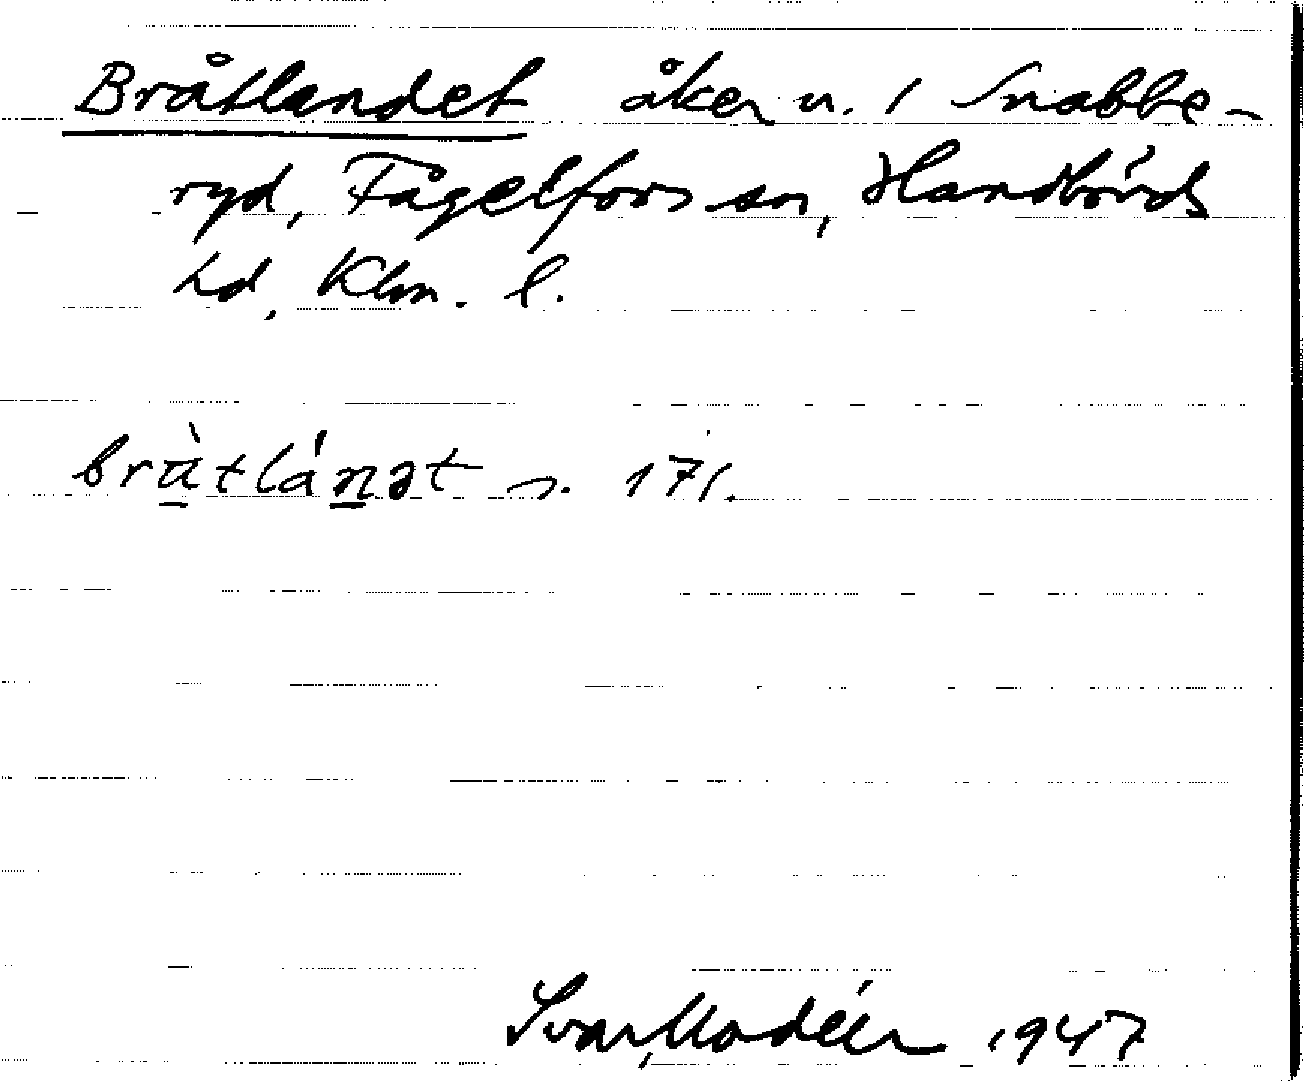 Bråtlandet åker n. 1 Snabbe-
ryd, Fågelfors sn, Handbörds
hd, Klm. l.
bràtlánət s. 171.
Ivar Modéer 1947